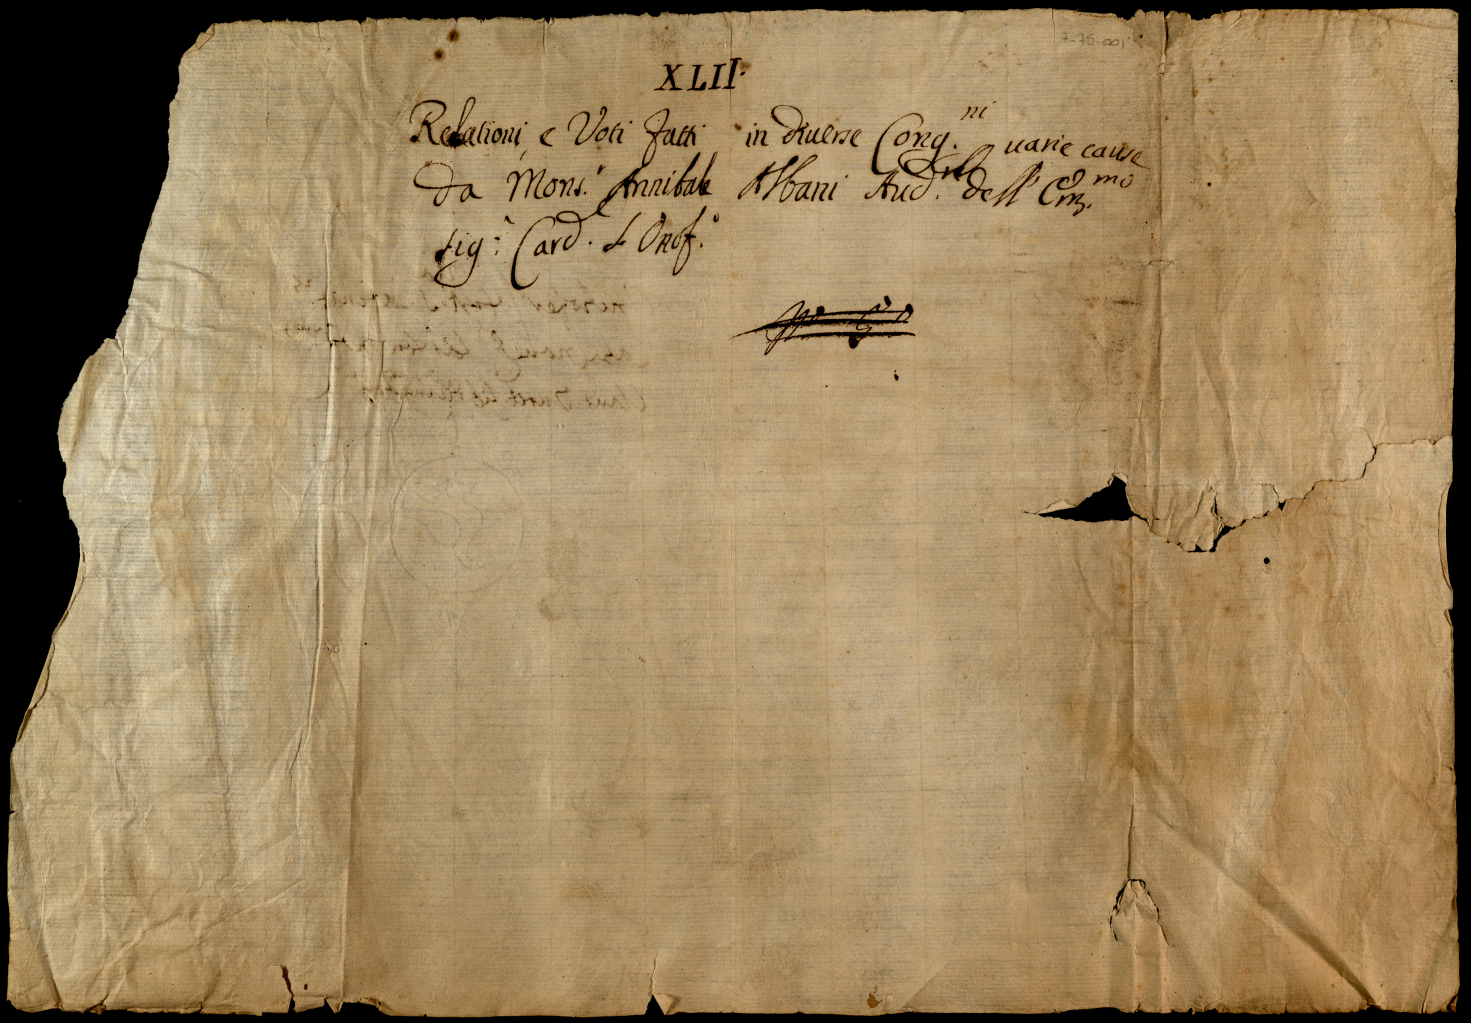 7-76-001
XLII.
Relationi, e Voti fatti in diverse Cong.ni varie cause
Da Mons.r Annibale Albani Aud. dell' Em.mo
Sig.r Card. S. Onof.o